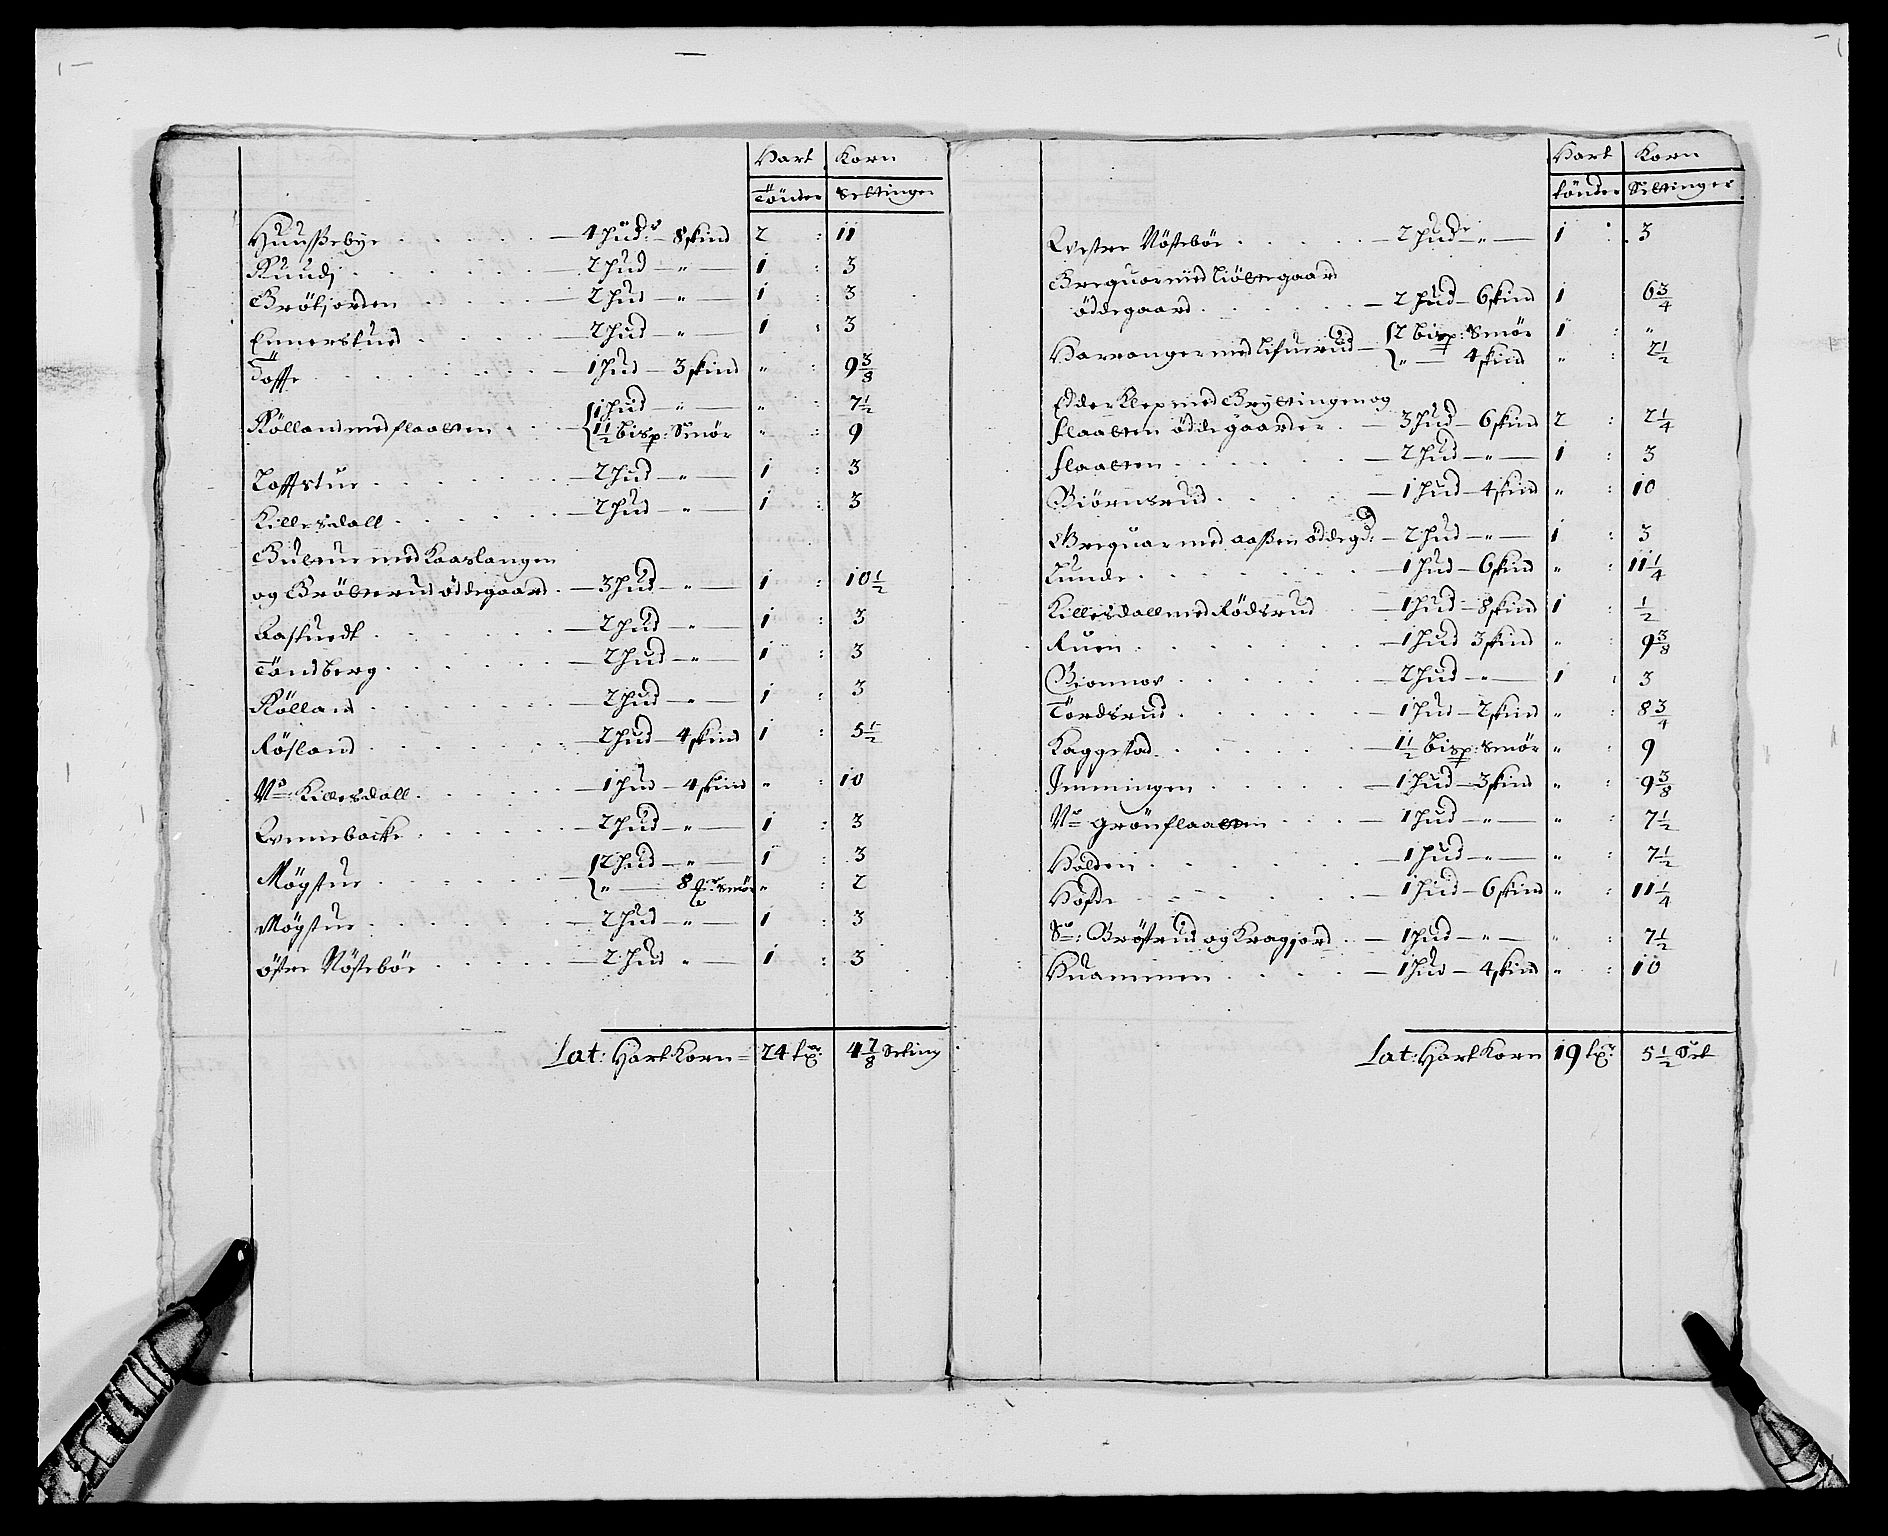 Hart Korn
Tönder Settinger
Huusebye 4 hud 8 skind 2 : 11
Ruud 2 hud " 1 : 3
Brötjorden 2 hud " 1 : 3
Ennerstued 2 hud " 1 : 3
Toffte 1 hud 3 skind " : 9 3/8
Rölland med flaatten 1 hud " " : 7 1/2
1 1/2 bisp: Smör " : 9
Loffstue 2 hud " 1 : 3
Killesdall 2 hud " 1 : 3
med Kaaslangen
og Brötterud öddegaard 3 hud " 1 : 10 1/2
2 hud " 1 : 3
Töndberg 2 hud " 1 : 3
Rölland 2 hud " 1 : 3
Rösland 2 hud 4 skind 1 : 5 1/2
No: Killesdall 1 hud 4 skind " : 10
2 hud " 1 : 3
Mögstue 2 hud " 1 : 3
" 8 smör " : 2
Mögstue 2 hud " 1 : 3
östre Nösteböe 2 hud " 1 : 3
Lat: Hart Korn 24 tr: 4 7/8 Setting
Hart Korn
tönder Settinger
Vestre Nösteböe 2 hud " 1 : 3
med gaard
öddegaard 2 hud 6 skind 1 6 3/4
Harranger med 2 bisp: Smör 1 : "
" 4 skind " : 2 1/2
Edderklep med Bryttingen og
flaatten öddegaarder 3 hud 6 skind 2 : 2 1/4
flaatten 2 hud " 1 : 3
Biörnsrud 1 hud 4 skind " : 10
med aassen öddegd: 2 hud " 1 : 3
Lunde 1 hud 6 skind " : 11 1/4
Killesdall med Rödsrud 1 hud 8 skind 1 : 1/2
Ruen 1 hud 3 skind " : 9 3/8
Bionnos 2 hud " 1 : 3
Tordsrud 1 hud 2 skind " : 8 3/4
Kaggestad 1 1/2 bisp: smör " : 9
Imningen 1 hud 3 skind " : 9 3/8
No grönflaatten 1 hud " " : 7 1/2
Holden 1 hud " " : 7 1/2
Hofde 1 hud 6 skind " : 11 1/4
So: Bröstrud og Kragjord 1 hud " " : 7 1/2
Huammen 1 hud 4 skind " : 10
Lat: Hart Korn 19 tr: 5 1/2 Set